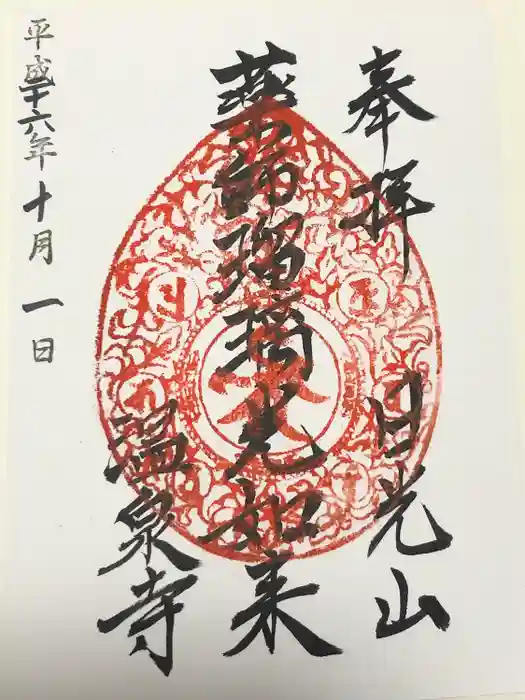 奉拝 日光山
薬師瑠璃光如来
温泉寺
平成二十六年十月一日